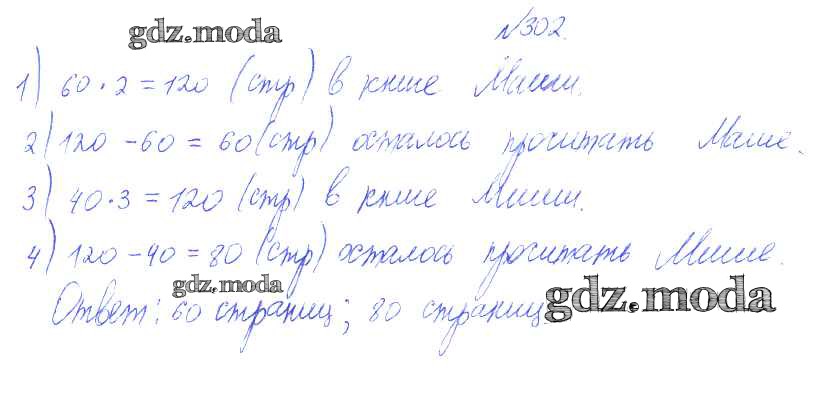 gdz.moda
№302.
1) 60 · 2 = 120 (стр) в книге Маши.
2) 120 - 60 = 60 (стр) осталось прочитать Маше.
3) 40 · 3 = 120 (стр) в книге Миши.
4) 120 - 40 = 80 (стр) осталось прочитать Мише.
gdz.moda
Ответ: 60 страниц; 80 страниц
gdz.moda